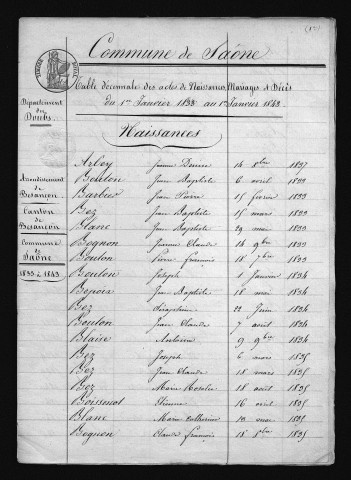 Commune de Saône
Table décennale des actes de Naissances, Mariages & Décès
du 1er Janvier 1833 au 1er Janvier 1843.
Département
du
Doubs
Naissances
Arrondissement
de
Besançon
Canton
de
Besançon
Commune
de
Saône
1833 à 1843
Arbey Jeanne Denise 14 8bre 1837
Boulon Jean Baptiste 6 avril 1833
Barbier Jean Pierre 15 février 1833
Bez Jean Baptiste 15 mars 1833
Blanc Jean Baptiste 29 mai 1833
Bognon Jeanne Claude 14 9bre 1833
Boulon Pierre François 18 7bre 1833
Boulon Joseph 1 Janvier 1834
Jean Baptiste 18 mai 1834
Bez Séraphine 22 Juin 1834
Boulon Jean Claude 7 avril 1834
Blaise Antoine 9 9bre 1834
Bez Joseph 6 mars 1835
Bez Jean Claude 18 mars 1835
Bez Marie Roselie 18 août 1835
Boissenot Etienne 16 avril 1835
Blanc Marie Catherine 13 mai 1835
Bognon Claude François 18 8bre 1835